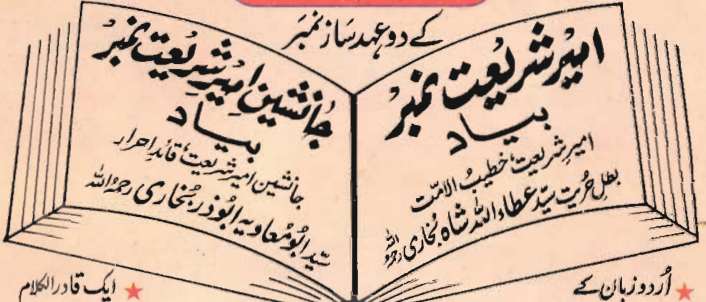 کے دو عہد ساز نمبر
امیر شریعت نمبر
بیاد
امیر شریعت، خطیب الامت
بطل حریت سید عطاء اللہ شاہ بخاری رحمہ اللہ
جانشین امیر شریعت نمبر
بیاد
جانشین امیر شریعت، قائد احرار
سید ابو معاویہ ابوذر بخاری رحمہ اللہ
★ اُردو زبان کے
★ ایک قادر الکلام